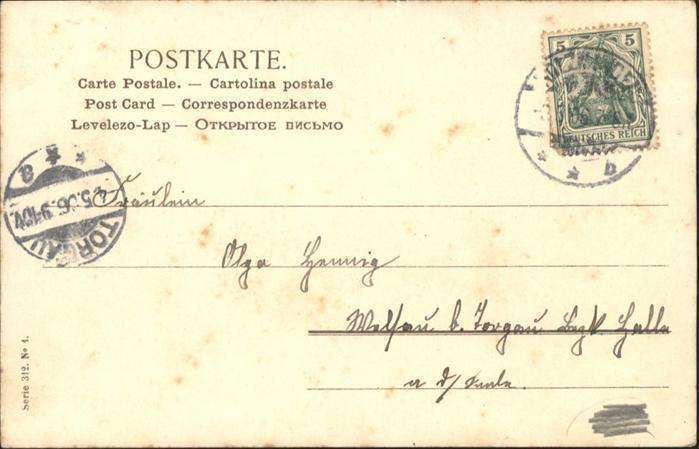 POSTKARTE.
Carte Postale. — Cartolina postale
Post Card — Correspondenzkarte
Levelezo-Lap — Открытое письмо
5 5
DEUTSCHES REICH
b
TORGAU
4.5.06.9-10V.
a
Fräulein
Olga Hennig
Welsau b. Torgau Bezk. Halle
a d/ Saale.
Serie 312. No 1.